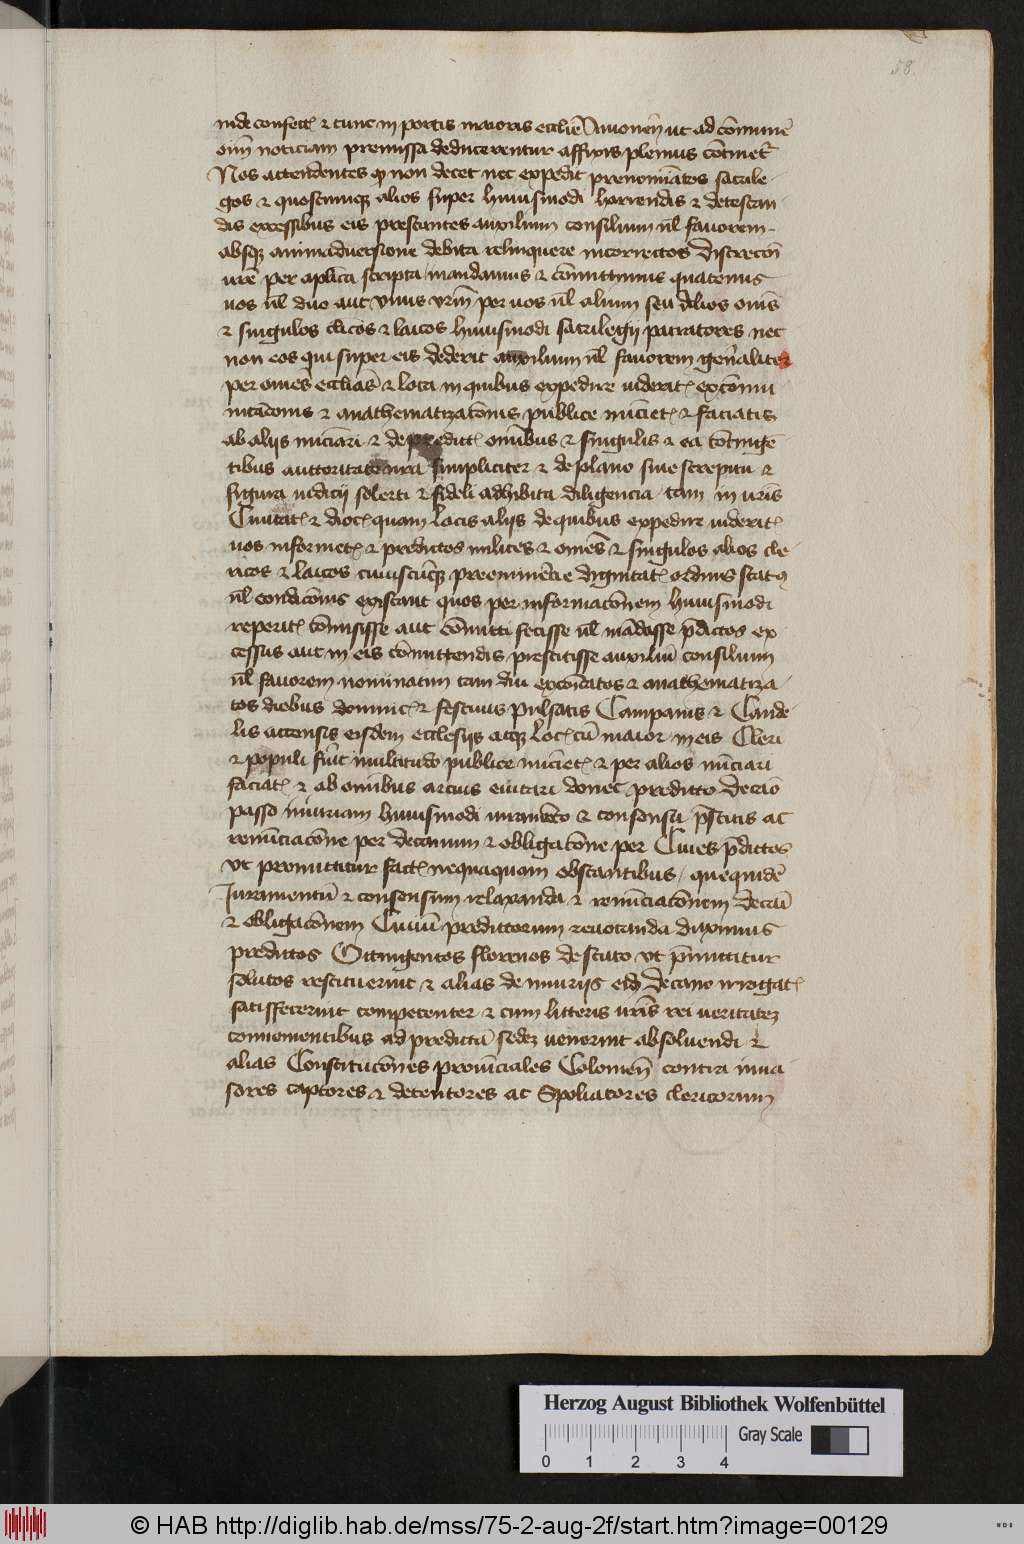 58
inde confect. & tunc in portis maioris ecclie Auionen ut ad commune
oim noticiam premissa deducerentur affixis plenius continet
Nos attendentes qd non decet nec expedit prenominatos sacrile
gos & quoscumqz alios super huiusmodi horrendis & detestan
dis excessibus eis prestantes auxilium consilium ul fauorem
absqz animaduersione debita relinquere incorrectos Discrecōi
vre per aplica scripta mandamus & committimus quatenus
vos ul duo aut vnus vrm per vos ul alium seu alios omes
& singulos clicos & laicos huiusmodi sacrilegij patratores nec
non eos qui super eis dederit auxilium ul fauorem generaliter
per omes ecclias & loca in quibus expedire uiderit. excommu
nicacionis & anathematizacōnis publice nunciet. & faciatis
ab aliis nunciari & de predict. omibus & singulis & ea contingen
tibus auctoritate nra simpliciter & de plano sine strepitu &
figura iudicii solerti & fideli adhibita diligencia tam in uris
Ciuitat. & dioc. quam locis aliis de quibus expedire uiderit.
vos informet. & predictos milites & omes & singulos alios cle
ricos & laicos cuiuscunqz preeminencie dignitat. ordinis status
ul condicōnis existant quos per informacōnem huiusmodi
reperit. commisisse aut committi fecisse ul mandasse pdictos ex
cessus aut in eis committendis prestitisse auxiliū consilium
ul fauorem nominatim tam diu excōicatos & anathematiza
tos diebus dominic. & festiuis pulsatis Campanis & Cande
lis accensis eisdem ecclesijs atqz loc. cū maior in eis Cleri
& populi fuit multitudo publice nunciet. & per alios nunciari
faciat. & ab omibus arcius euitari donec predicto Decano
passo iniuriam huiusmodi iuramento & consensu prestitis ac
renunciacōne per decanum & obligacōne per Ciues pdictos
vt promittitur fact. nequaquam obstantibus, que quidē
Iuramentū & consensum relaxanda & renunciacōnem decani
& obligacōnem Ciuiū predictorum reuocanda duximus
predictos Octingentos florenos de scuto vt pmittitur
solutos restituerint & alias de iniurijs eidē Decano irrogat.
satisfecerint competenter & cum litteris uris rei ueritatez
continentibus ad predictā sedez uenerint absoluendi &
alias Constitucōnes prouinciales Colonien contra inua
sores captores & detentores ac Spoliatores clericorum
Herzog August Bibliothek Wolfenbüttel
Gray Scale
0 1 2 3 4
© HAB http://diglib.hab.de/mss/75-2-aug-2f/start.htm?image=00129